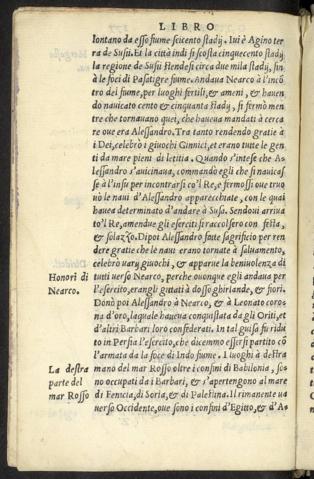 LIBRO
lontano da esso fiume seicento stadij. Iui è Agino ter
ra de Susij. Et la città indi si scosta cinquecento stadij
la regione de Susij stendesi circa due mila stadij, fin
à le foci di Pasatigre fiume. Andaua Nearco à l'incõ
tro del fiume, per luoghi fertili, & ameni, & hauen
do nauicato cento & cinquanta stadij, si fermò men
tre che tornauano quei, che haueua mandati à cerca
re oue era Alessandro. Tra tanto rendendo gratie à
i Dei, celebrò i giuochi Ginnici, et erano tutte le gen
ti da mare pieni di letitia. Quando s'intese che A-
lessandro s'auicinaua, commando egli che si nauicas
se à l'insu per incontrarsi co'l Re, e fermossi oue truo
uò le naui d'Alessandro apparecchiate, con le quai
hauea determinato d'andare à Susa. Sendoui arriua
to'l Re, amendue gli eserciti si raccolsero con festa,
& solazzo. Dipoi Alessandro fatte sagrificio per ren
dere gratie che le naui erano tornate à saluamento,
celebrò uary giuochi, & apparue la beniuolenza di
tutti uerso Nearco, perche ouunque egli andaua per
l'esercito, erangli gittati à dosso ghirlande, & fiori.
Donò poi Alessandro à Nearco, & à Leonato coro-
na d'oro, laquale haueua conquistata da gli Oriti, et
d'altri Barbari loro confederati. In tal guisa fu ridu
to in Persia l'esercito, che dicemmo essersi partito cõ
l'armata da la foce di Indo fiume. I luoghi à destra
mano del mar Rosso oltre i confini di Babilonia, so-
no occupati da i Barbari, & s'apertengono al mare
di Fenicia, di Soria, & di Palestina. Il rimanente ua
uerso Occidente, oue sono i confini d'Egitto, & d'A-
Honori di
Nearco.
La destra
parte del
mar Rosso